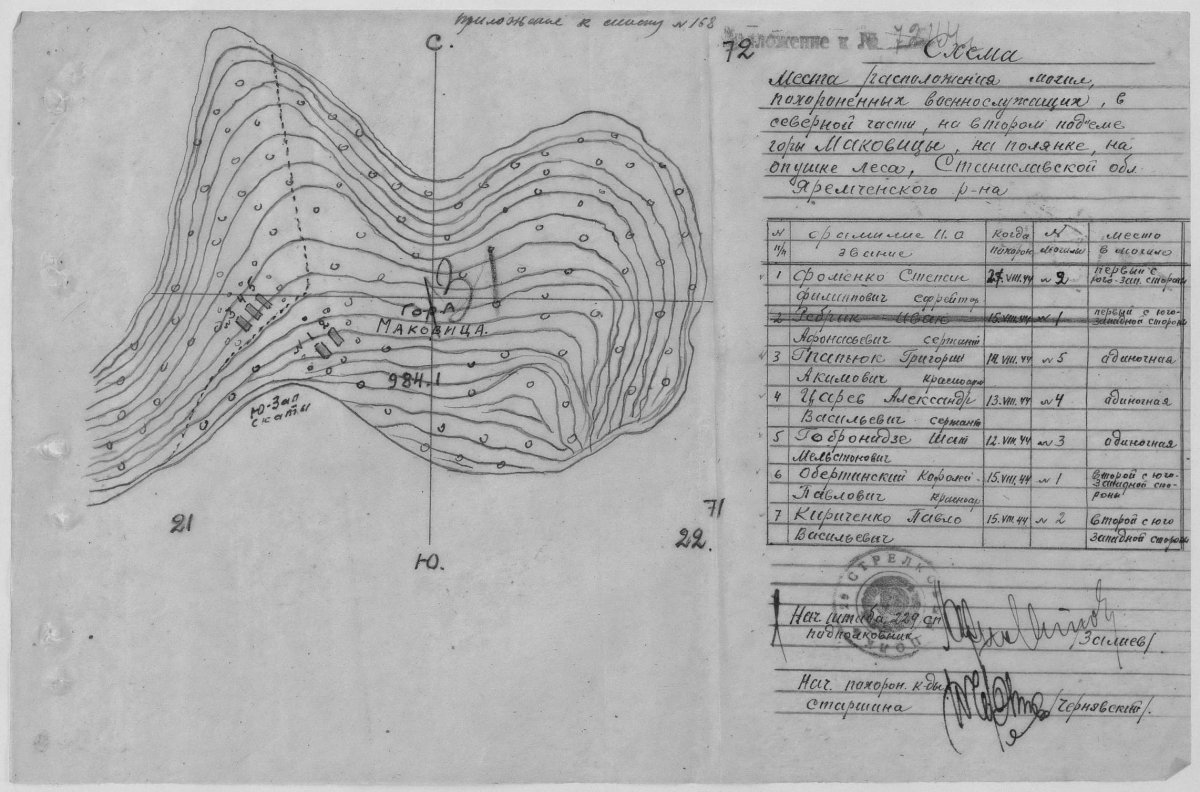 Приложение к списку № 168
Приложение к №
72
Схема
Места расположения могил,
похороненных военнослужащих, в
северной части, на втором подъеме
горы Маковицы, на полянке, на
опушке леса, Станиславской обл.
Яремченского р-на
С.
Гора
Маковица.
984.1
Ю-Зап
скаты
21
71
22.
Ю.
N п/п фамилие И.О звание когда похорон N могилы место в могиле
1 Фоменко Степан 27.VIII.44 №2 первый с юго-зап. стороны
Филиппович ефрейтор
2 Ребрик Иван 15.VIII.44 №1 первый с юго-западной стороны
Афонасьевич сержант
3 Григорий VIII.44 №5 одиночная
Акимович красноарм
4 Царев Александр 13.VIII.44 №4 одиночная
Васильевич сержант
5 12.VIII.44 №3 одиночная
6 Обертинский 15.VIII.44 №1 второй с юго-западной стороны
Павлович красноар
7 Кириченко Павло 15.VIII.44 №2 второй с юго
Васильевич западной стороны
Нач. штаба 229 сп
подполковник /Залиев/
Нач. похорон. к-ды
старшина /Чернявский/.